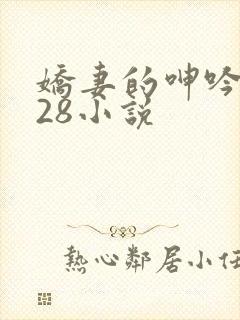 嬌妻的呻吟
28小說
熱心鄰居小任